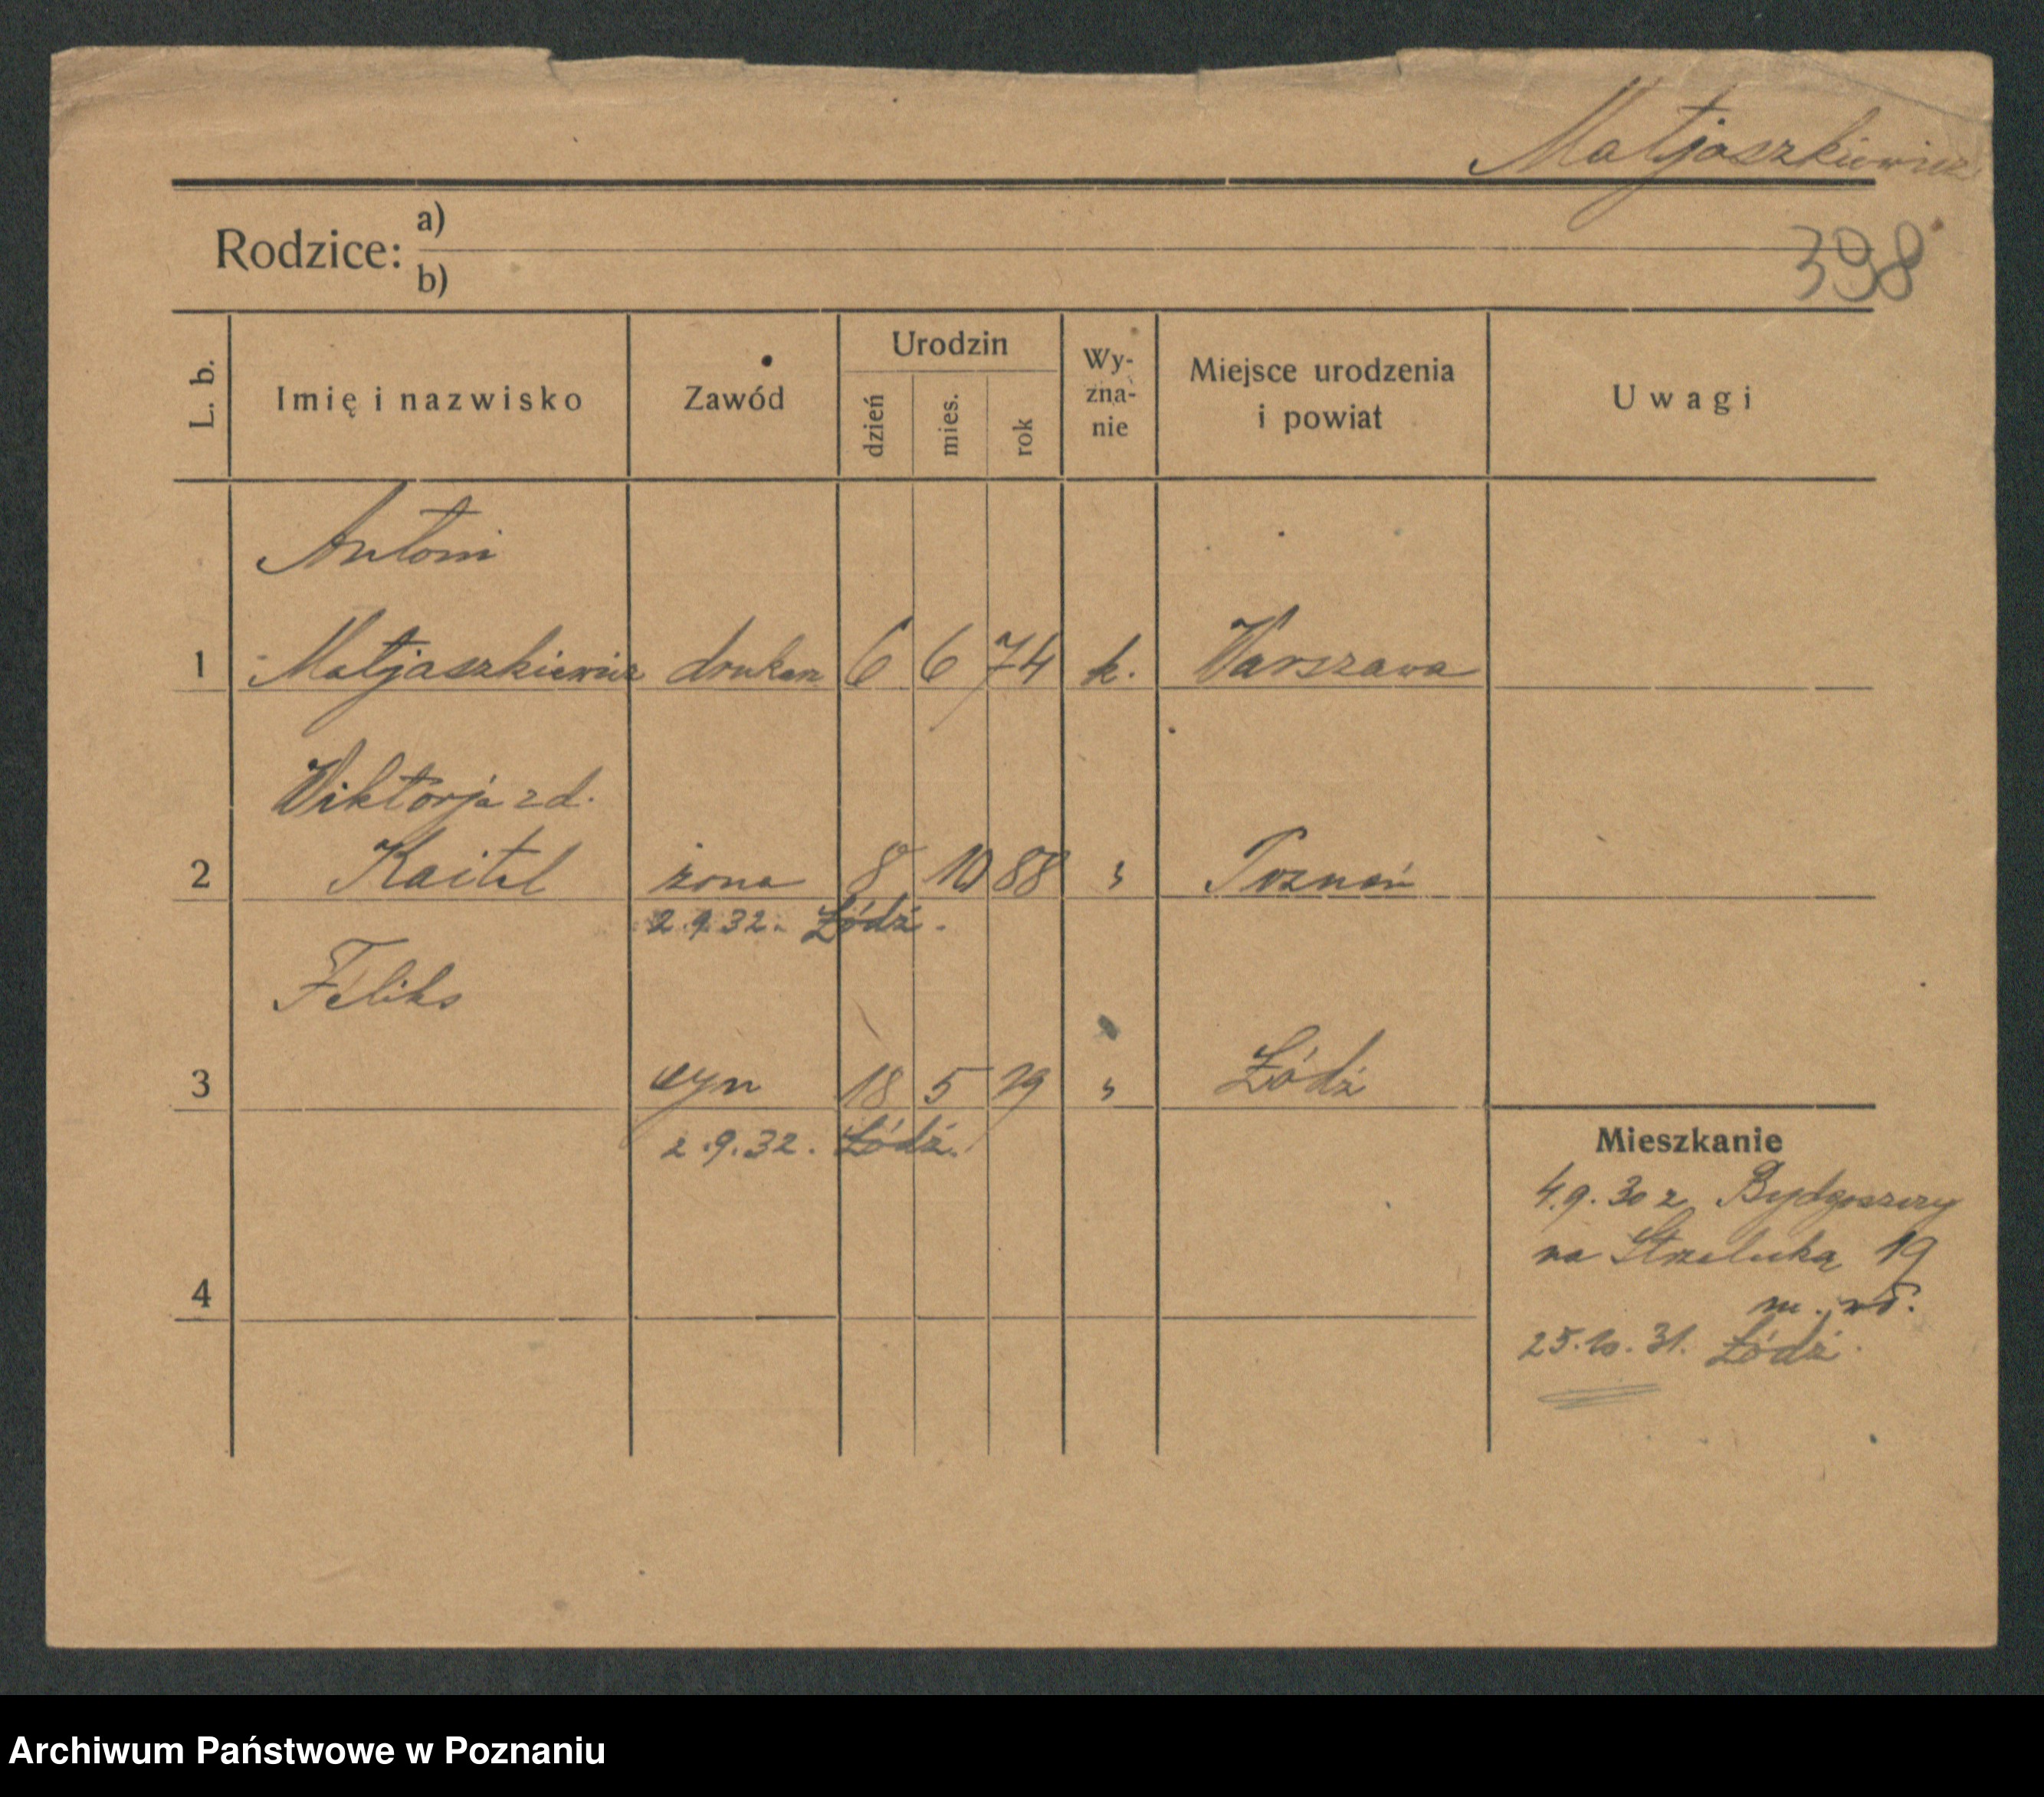 Matjaszkiewicz
Rodzice: a)
b)
398
L. b. Imię i nazwisko Zawód Urodzin dzień mies. rok Wy-zna-nie Miejsce urodzenia i powiat Uwagi
Antoni
1 Matjaszkiewicz drukarz 6 6 74 k. Warszawa
Wiktorja zd.
2 Kaitel żona 8 10 88 " Poznań
2.9.32. Łódź.
Feliks
3 syn 18 5 19 " Łódź
2.9.32. Łódź.
Mieszkanie
4.9.30 z Bydgoszczy
na Strzelecką 19
4
25.10.31. Łódź.
Archiwum Państwowe w Poznaniu